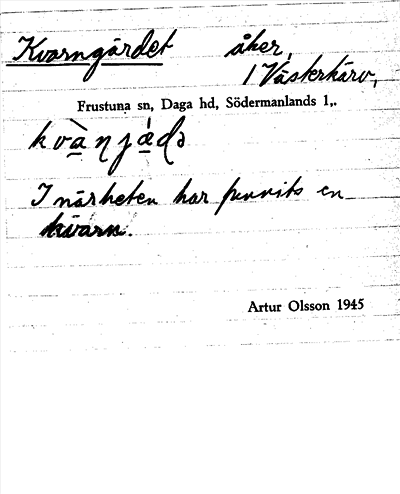 Kvarngärdet åker,
1 Västerkärv,
Frustuna sn, Daga hd, Södermanlands l,.
I närheten har funnits en
kvarn.
Artur Olsson 1945